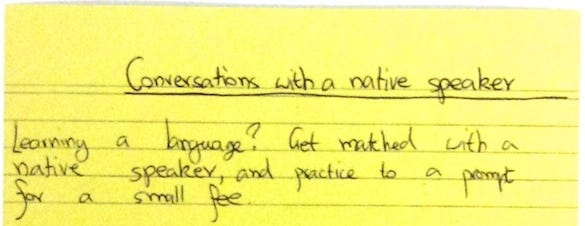 Conversations with a native speaker
Learning a language? Get matched with a
native speaker, and practice to a prompt
for a small fee.